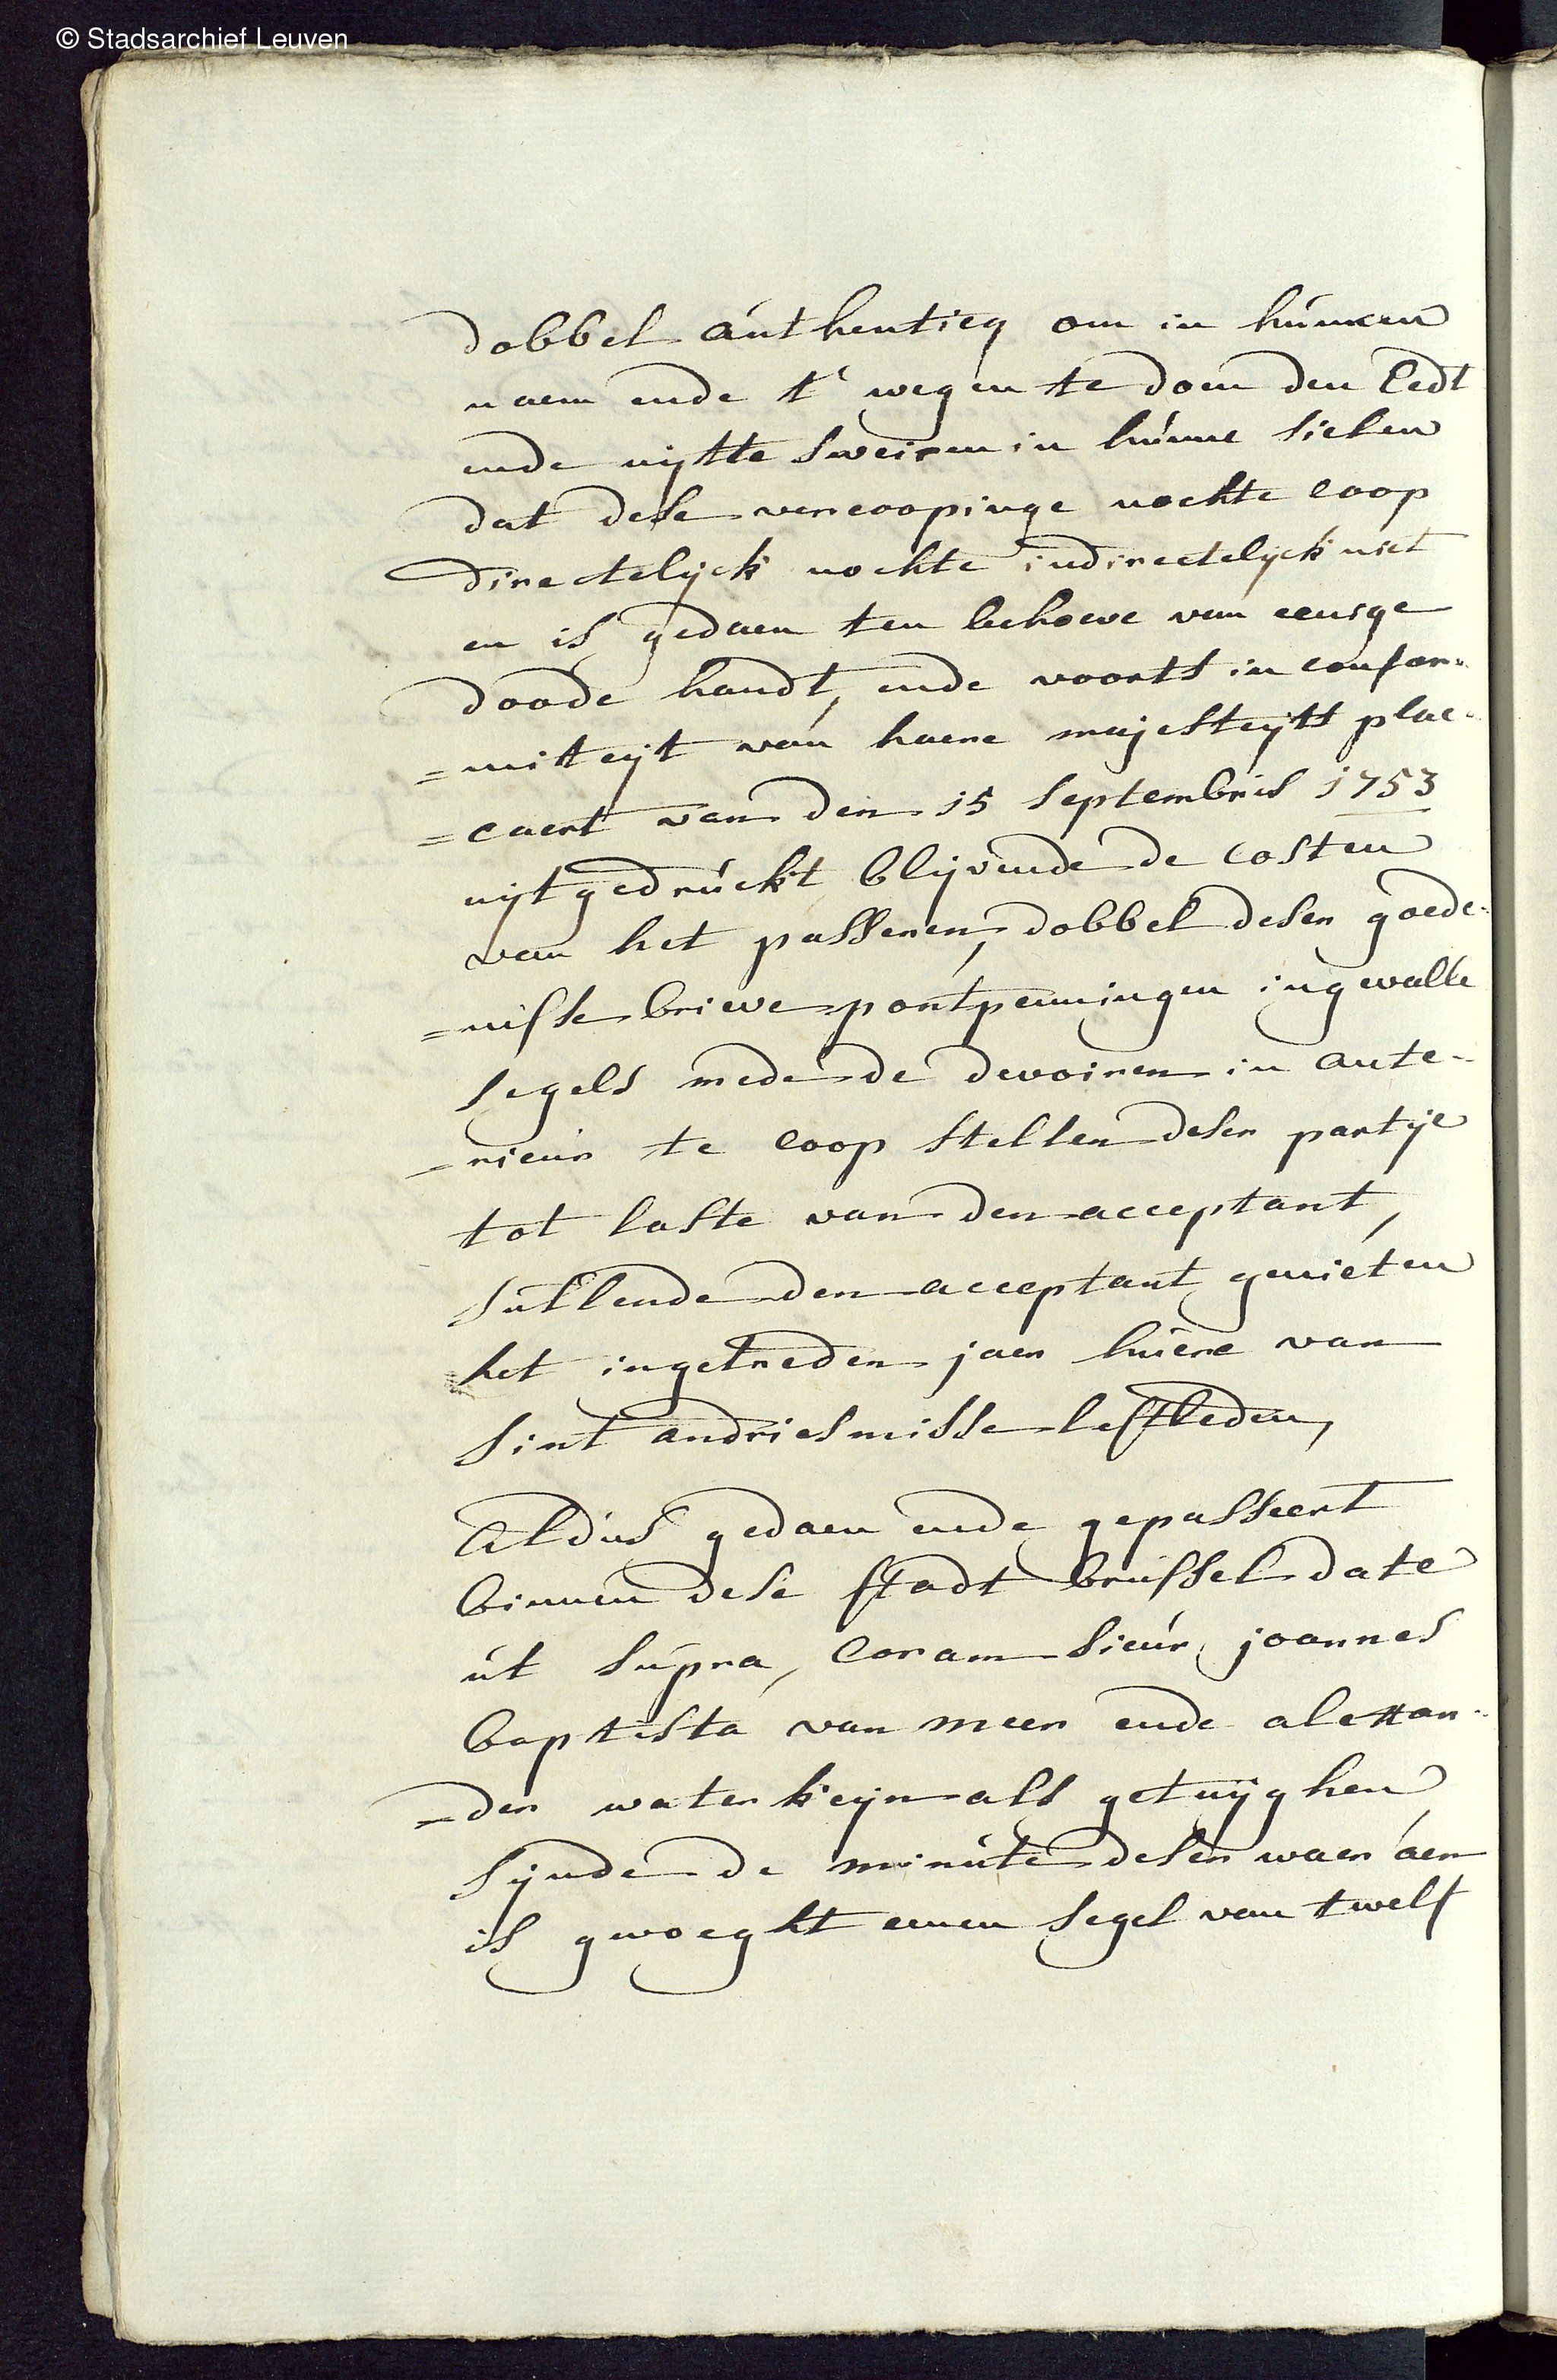 © Stadsarchief Leuven
dobbel authentieq om in hunnen
naem ende t' wegen te doen den Eedt
ende uijtte sweiren in hunne sielen
dat dese vercoopinge nochte coop
directelijck nochte indirectelijck niet
en is gedaen ten behoeve van eenige
doode handt, ende voorts in confor-
=miteijt van haere majesteijts plac-
=caert van den 15 septembris 1753
uijtgedruckt blijvende de costen
van het passeren, dobbel deser goede-
=nisse brieve pontpenningen ingevalle
segels mede de devoiren in ante-
=rieur te coop stellen deser partije
tot laste van den acceptant,
sullende den acceptant genieten
het ingetreden jaer huere van
Sint andriesmisse lestleden,
Aldus gedaen ende gepasseert
binnen dese stadt brussel date
ut supra, coram sieur joannes
baptista van meer ende alexan-
=der waterkeyn als getuijghen
sijnde de minute deser waer aen
is gevoeght eenen segel van twelf